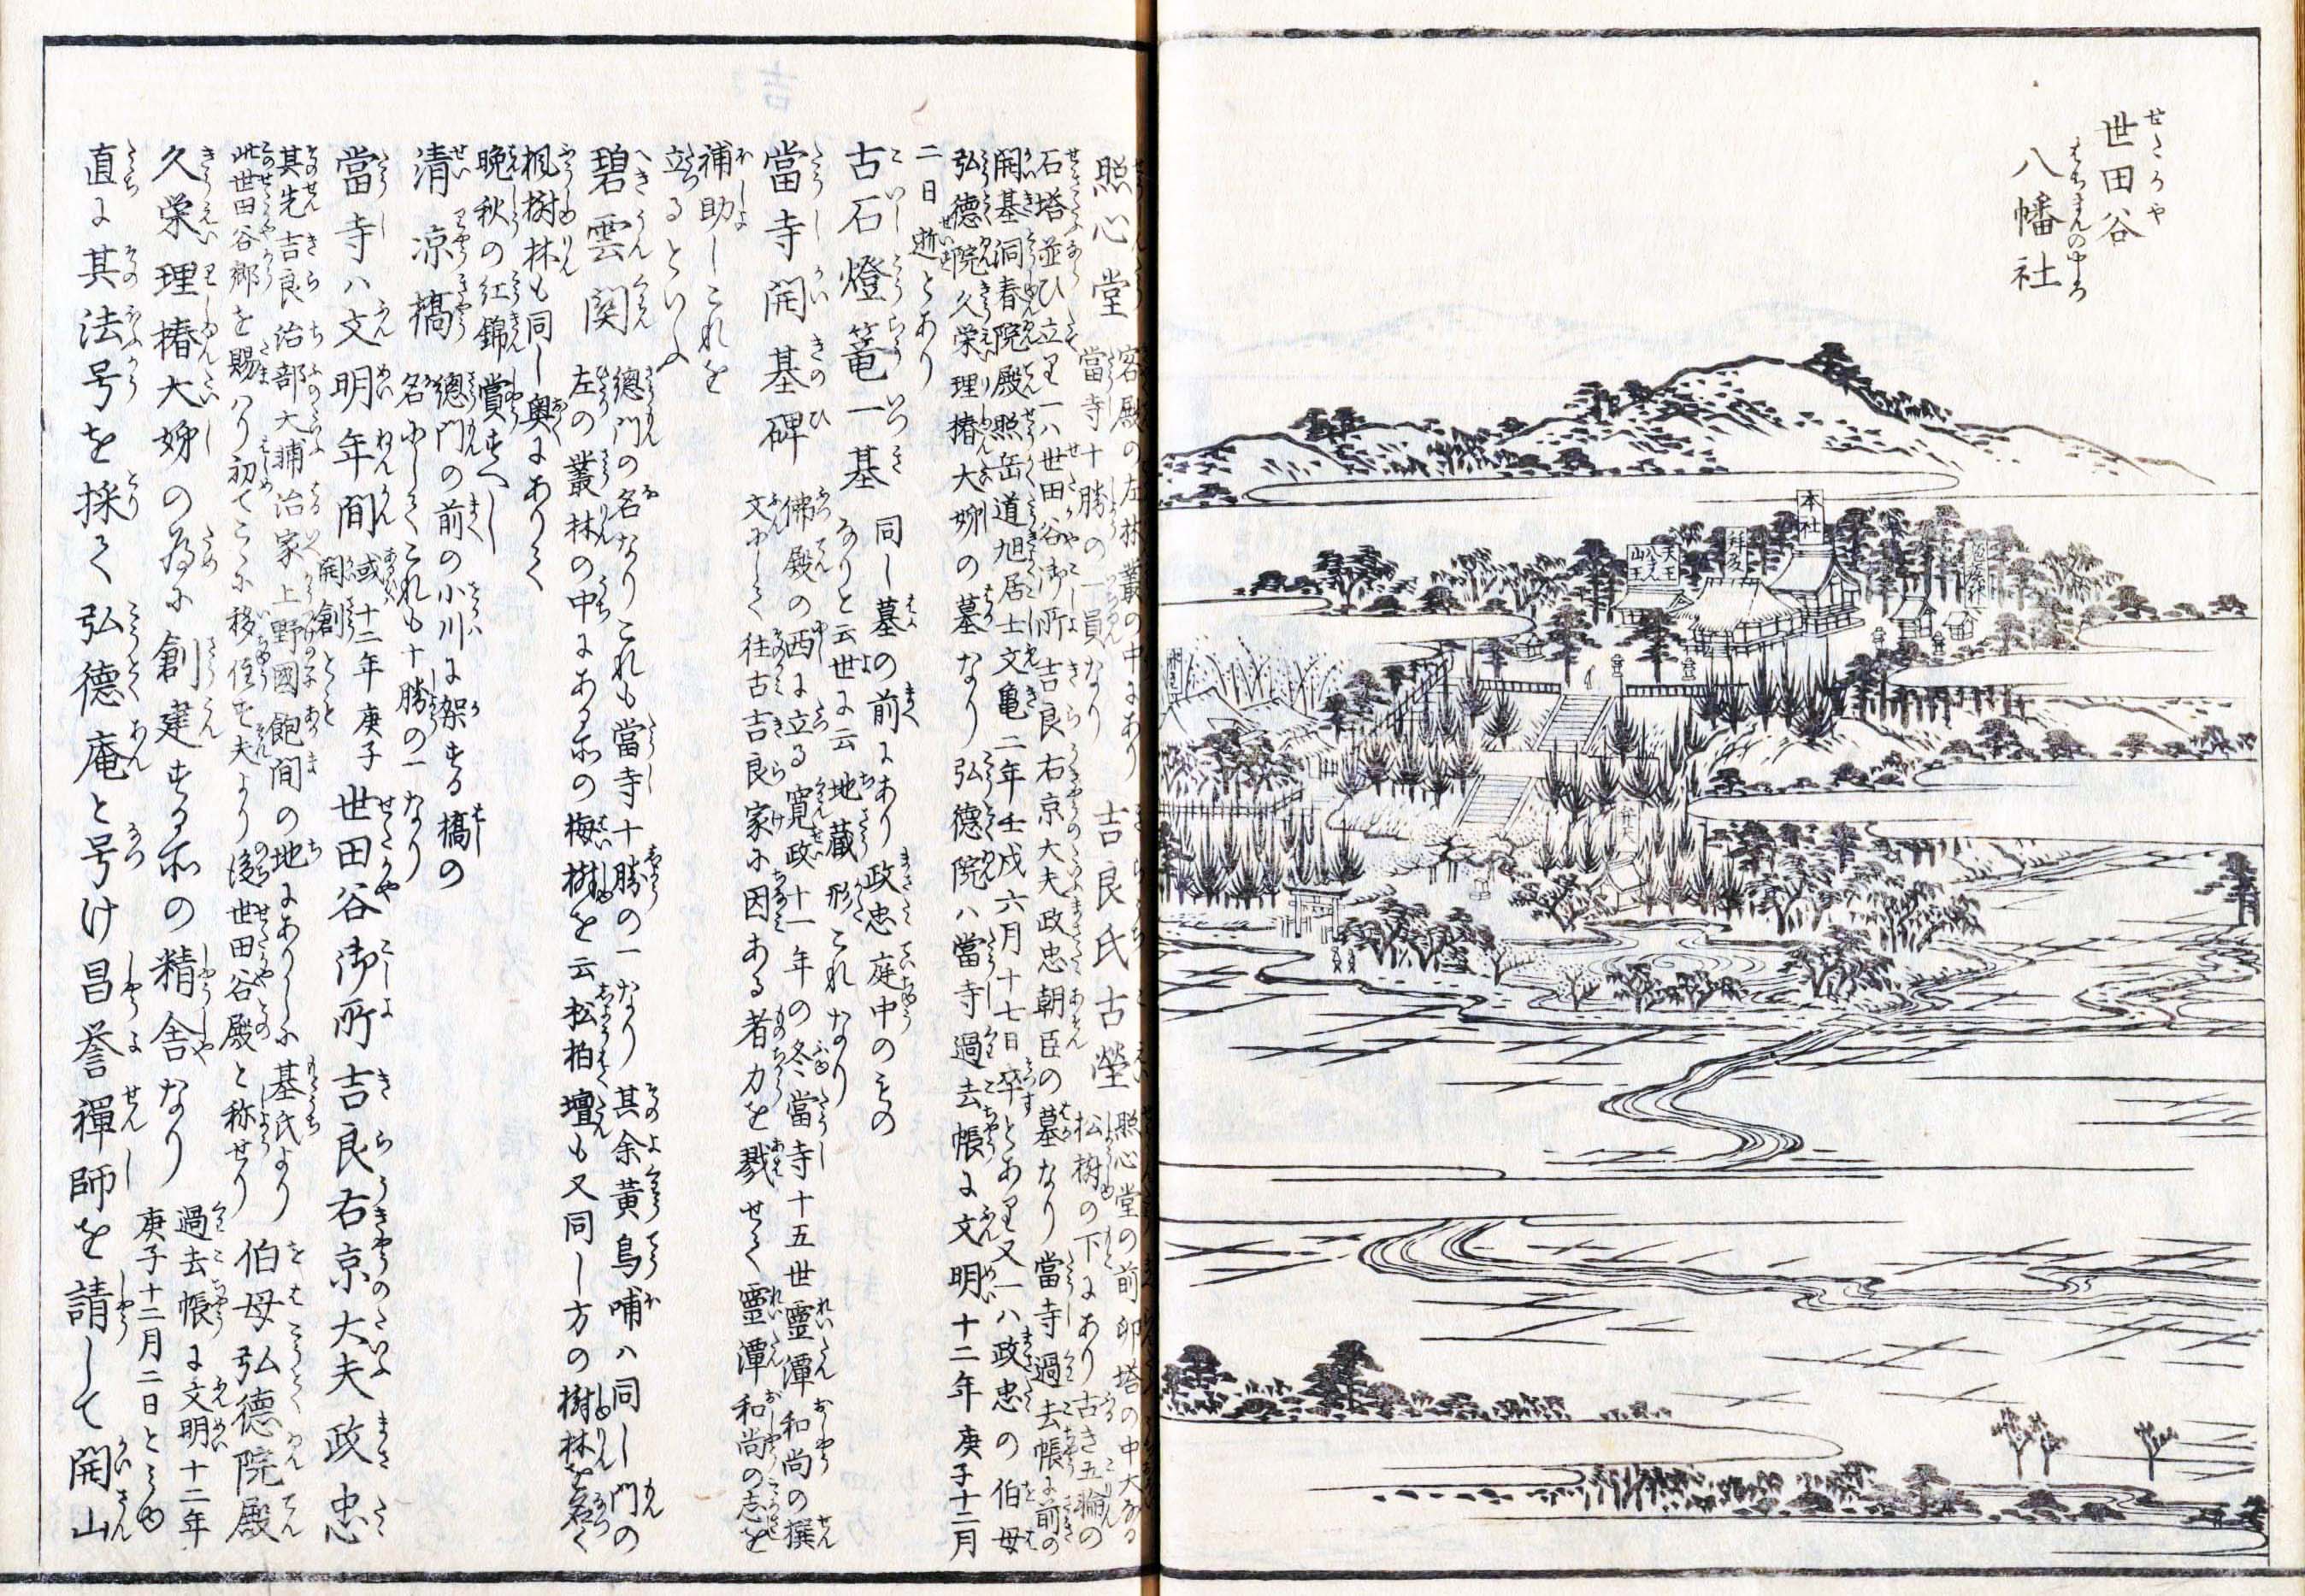 世田谷
八幡社
本社
拝殿
天王
八まん
山王
弁天
照心堂 客殿の左林叢の中にあり
當寺十勝の一員なり
吉良氏古塋 照心堂の前卵塔の中大なる
松樹の下にあり古き五輪の
石塔並ひ立り一ハ世田谷御所吉良右京大夫政忠朝臣の墓なり當寺過去帳に前の
開基洞春院殿照岳道旭居士文亀二年壬戌六月十七日卒とあり又一ハ政忠の伯母
弘徳院久栄理椿大姉の墓なり弘徳院ハ當寺過去帳に文明十二年庚子十二月
二日逝とあり
古石燈篭一基 同し墓の前にあり政忠庭中のもの
なりと云世に云地蔵形これなり
當寺開基碑 佛殿の西に立る寛政十一年の冬當寺十五世靈潭和尚の撰
文にして往古吉良家に因ある者力を戮せて靈潭和尚の志を
補助しこれを
立るといふ
碧雲関 總門の名なりこれも當寺十勝の一なり其余黄鳥哺ハ同し門の
左の叢林の中にある所の梅樹を云松柏壇も又同し方の樹林を名く
楓樹林も同し奥にありて
晩秋の紅錦賞すへし
清凉橋 總門の前の小川に架する橋の
名にしてこれも十勝の一なり
當寺ハ文明年間 或十二年庚子
開創とも 世田谷御所吉良右京大夫政忠
其先吉良治部大輔治家上野國飽間の地にありしに基氏より
此世田谷郷を賜ハり初てこゝに移住す夫より後世田谷殿と称せり 伯母弘徳院殿
久栄理椿大姉の為に創建する所の精舎なり 過去帳に文明十二年
庚子十二月二日とあり
直に其法号を採て弘徳庵と号け昌誉禅師を請して開山